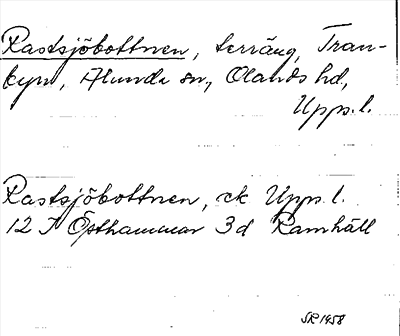 Rastsjöbottnen, terräng, Tran-
byn, Alunda sn., Olands hd,
Upps. l.
Rastsjöbottnen, ek Upps. l.
12 I Östhammar 3d Ramhäll
SR 1958